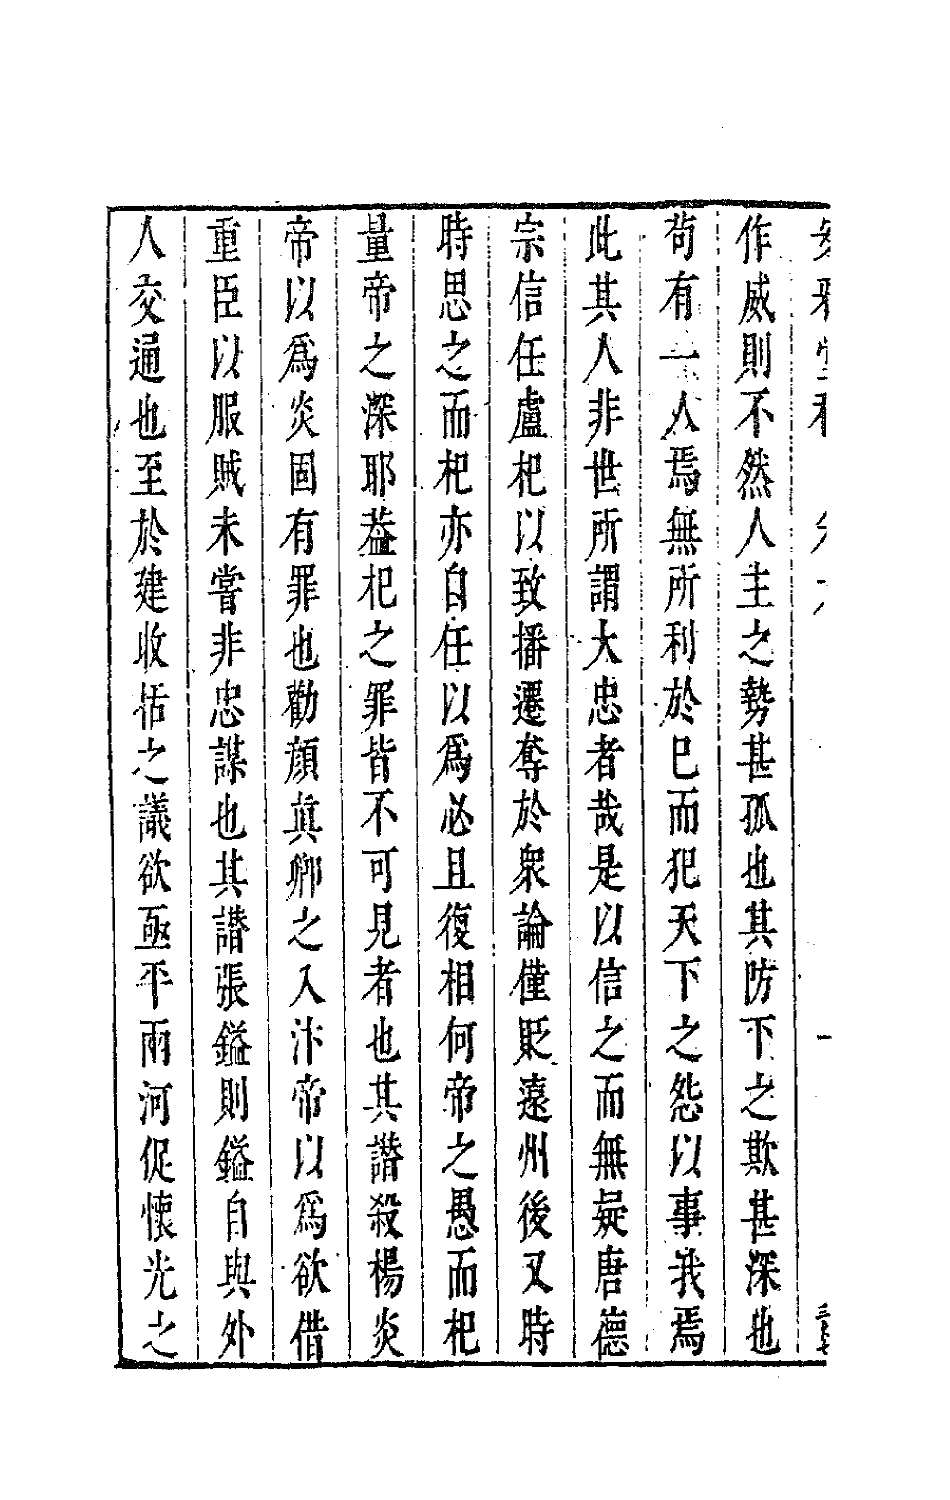 作威則不然人主之勢甚孤也其防下之欺甚深也
苟有一人焉無所利於已而犯天下之怨以事我焉
此其人非世所謂大忠者哉是以信之而無疑唐德
宗信任盧杞以致播遷奪於衆論僅貶遠州後又時
時思之而杞亦自任以爲必且復相何帝之愚而杞
量帝之深耶葢杞之罪皆不可見者也其譖殺楊炎
帝以爲炎固有罪也勸顔眞卿之入汴帝以爲欲借
重臣以服賊未嘗非忠謀也其譖張鎰則鎰自與外
人交通也至於建收括之議欲亟平兩河促懷光之